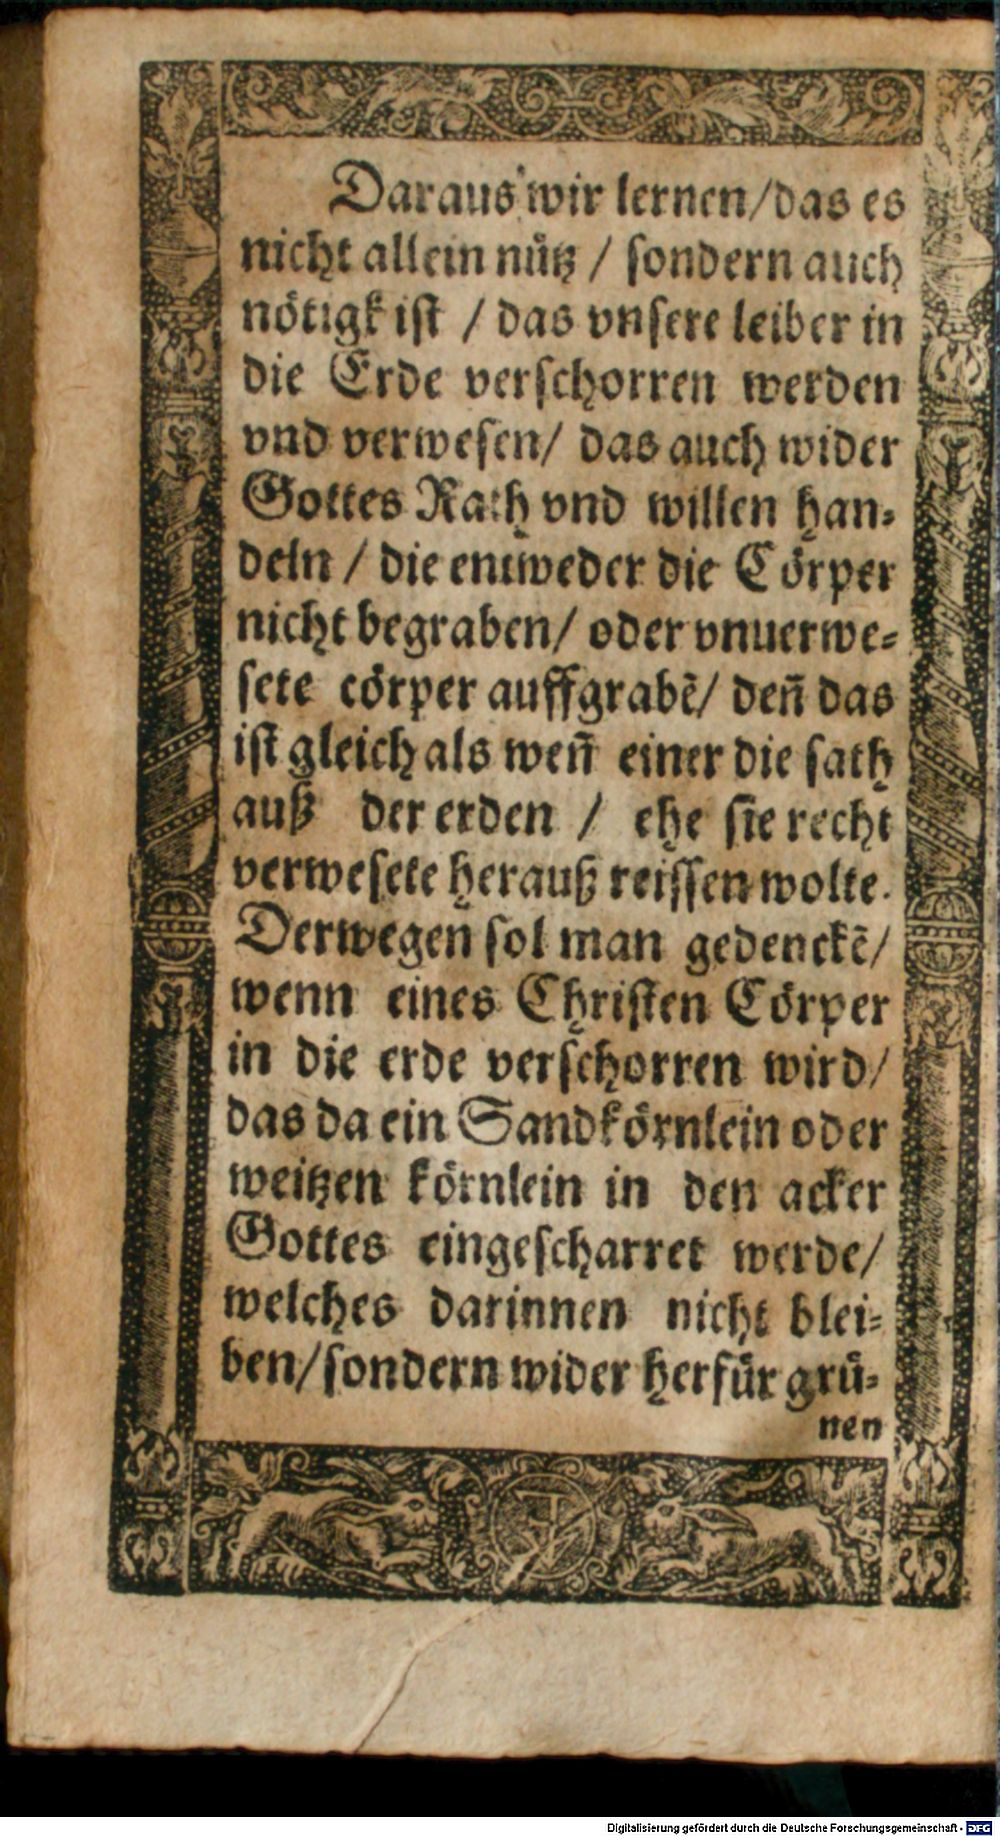 Daraus wir lernen/das es
nicht allein nuͤtz / sondern auch
noͤtigk ist / das vnsere leiber in
die Erde verschorren werden
vnd verwesen/ das auch wider
Gottes Rath vnd willen han⸗
deln / die entweder die Coͤrper
nicht begraben/ oder vnuerwe⸗
sete coͤrper auffgrabē/ den̄ das
ist gleich als wen̄ einer die sath
auß der erden / ehe sie recht
verwesete herauß reissen wolte.
Derwegen sol man gedenckē/
wenn eines Christen Coͤrper
in die erde verschorren wird/
das da ein Sandkoͤrnlein oder
weitzen koͤrnlein in den acker
Gottes eingescharret werde/
welches darinnen nicht blei⸗
ben/sondern wider herfuͤr gruͤ⸗
nen
Digitalisierung gefördert durch die Deutsche Forschungsgemeinschaft - DFG